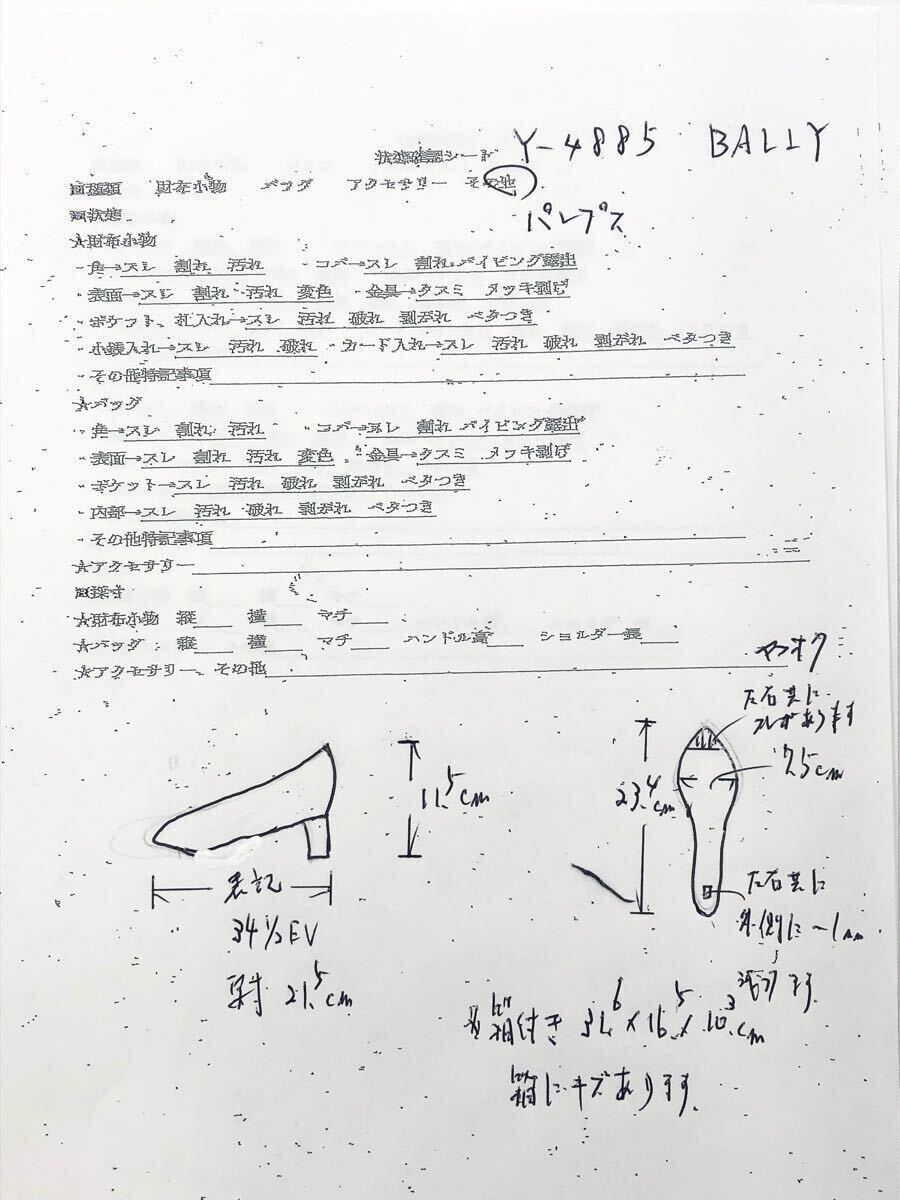 Y-4885 BALLY
状態確認シート
■種類 財布小物 バッグ アクセサリー その他
パンプス
■状態
★財布小物
・角→スレ 割れ 汚れ ・コバ→スレ 割れ パイピング露出
・表面→スレ 割れ 汚れ 変色 ・金具→クスミ メッキ剥げ
・ポケット、札入れ→スレ 汚れ 破れ 剥がれ ベタつき
・小銭入れ→スレ 汚れ 破れ ・カード入れ→スレ 汚れ 破れ 剥がれ ベタつき
・その他特記事項
★バッグ
・角→スレ 割れ 汚れ ・コバ→スレ 割れ パイピング露出
・表面→スレ 割れ 汚れ 変色 ・金具→クスミ メッキ剥げ
・ポケット→スレ 汚れ 破れ 剥がれ ベタつき
・内部→スレ 汚れ 破れ 剥がれ ベタつき
・その他特記事項
★アクセサリー
■採寸
★財布小物 縦 横 マチ
★バッグ 縦 横 マチ ハンドル高 ショルダー長
★アクセサリー、その他
ヤフオク
左右共に
スレがあります
7.5cm
11.5cm
23.4cm
表記
34 1/2 EV
実寸 21.5cm
左右共に
外側に~1mm
箱付き 31.6×16.5×10.3cm
箱にキズあります。